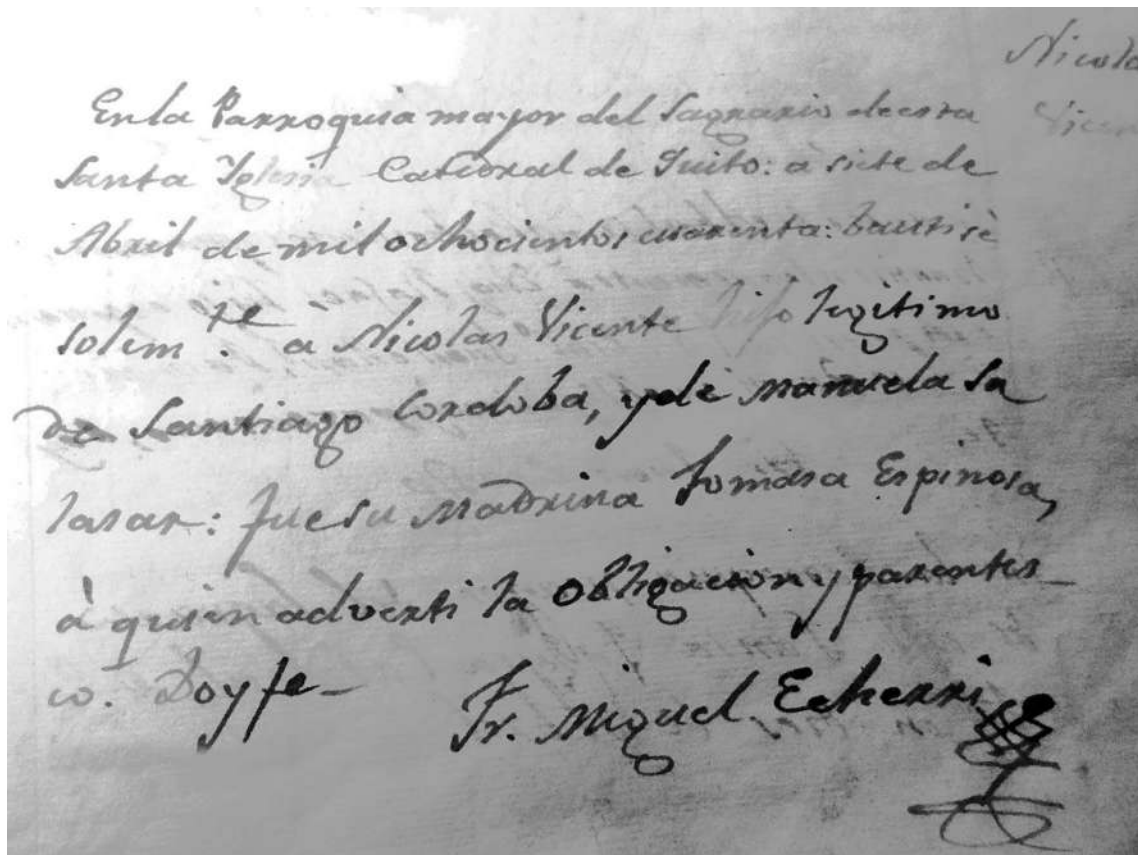 Nicola
Vicen
En la Parroquia mayor del Sagrario de esta
Santa Iglesia Catedral de Quito: a siete de
Abril de mil ochocientos cuarenta: bautisè
solem.te à Nicolas Vicente hijo legitimo
de Santiago Cordoba, y de Manuela Sa
lasar: fue su Madrina Tomasa Espinosa,
à quien adverti la obligacion y parentes-
co. Doy fe-
Fr. Miguel Echerri